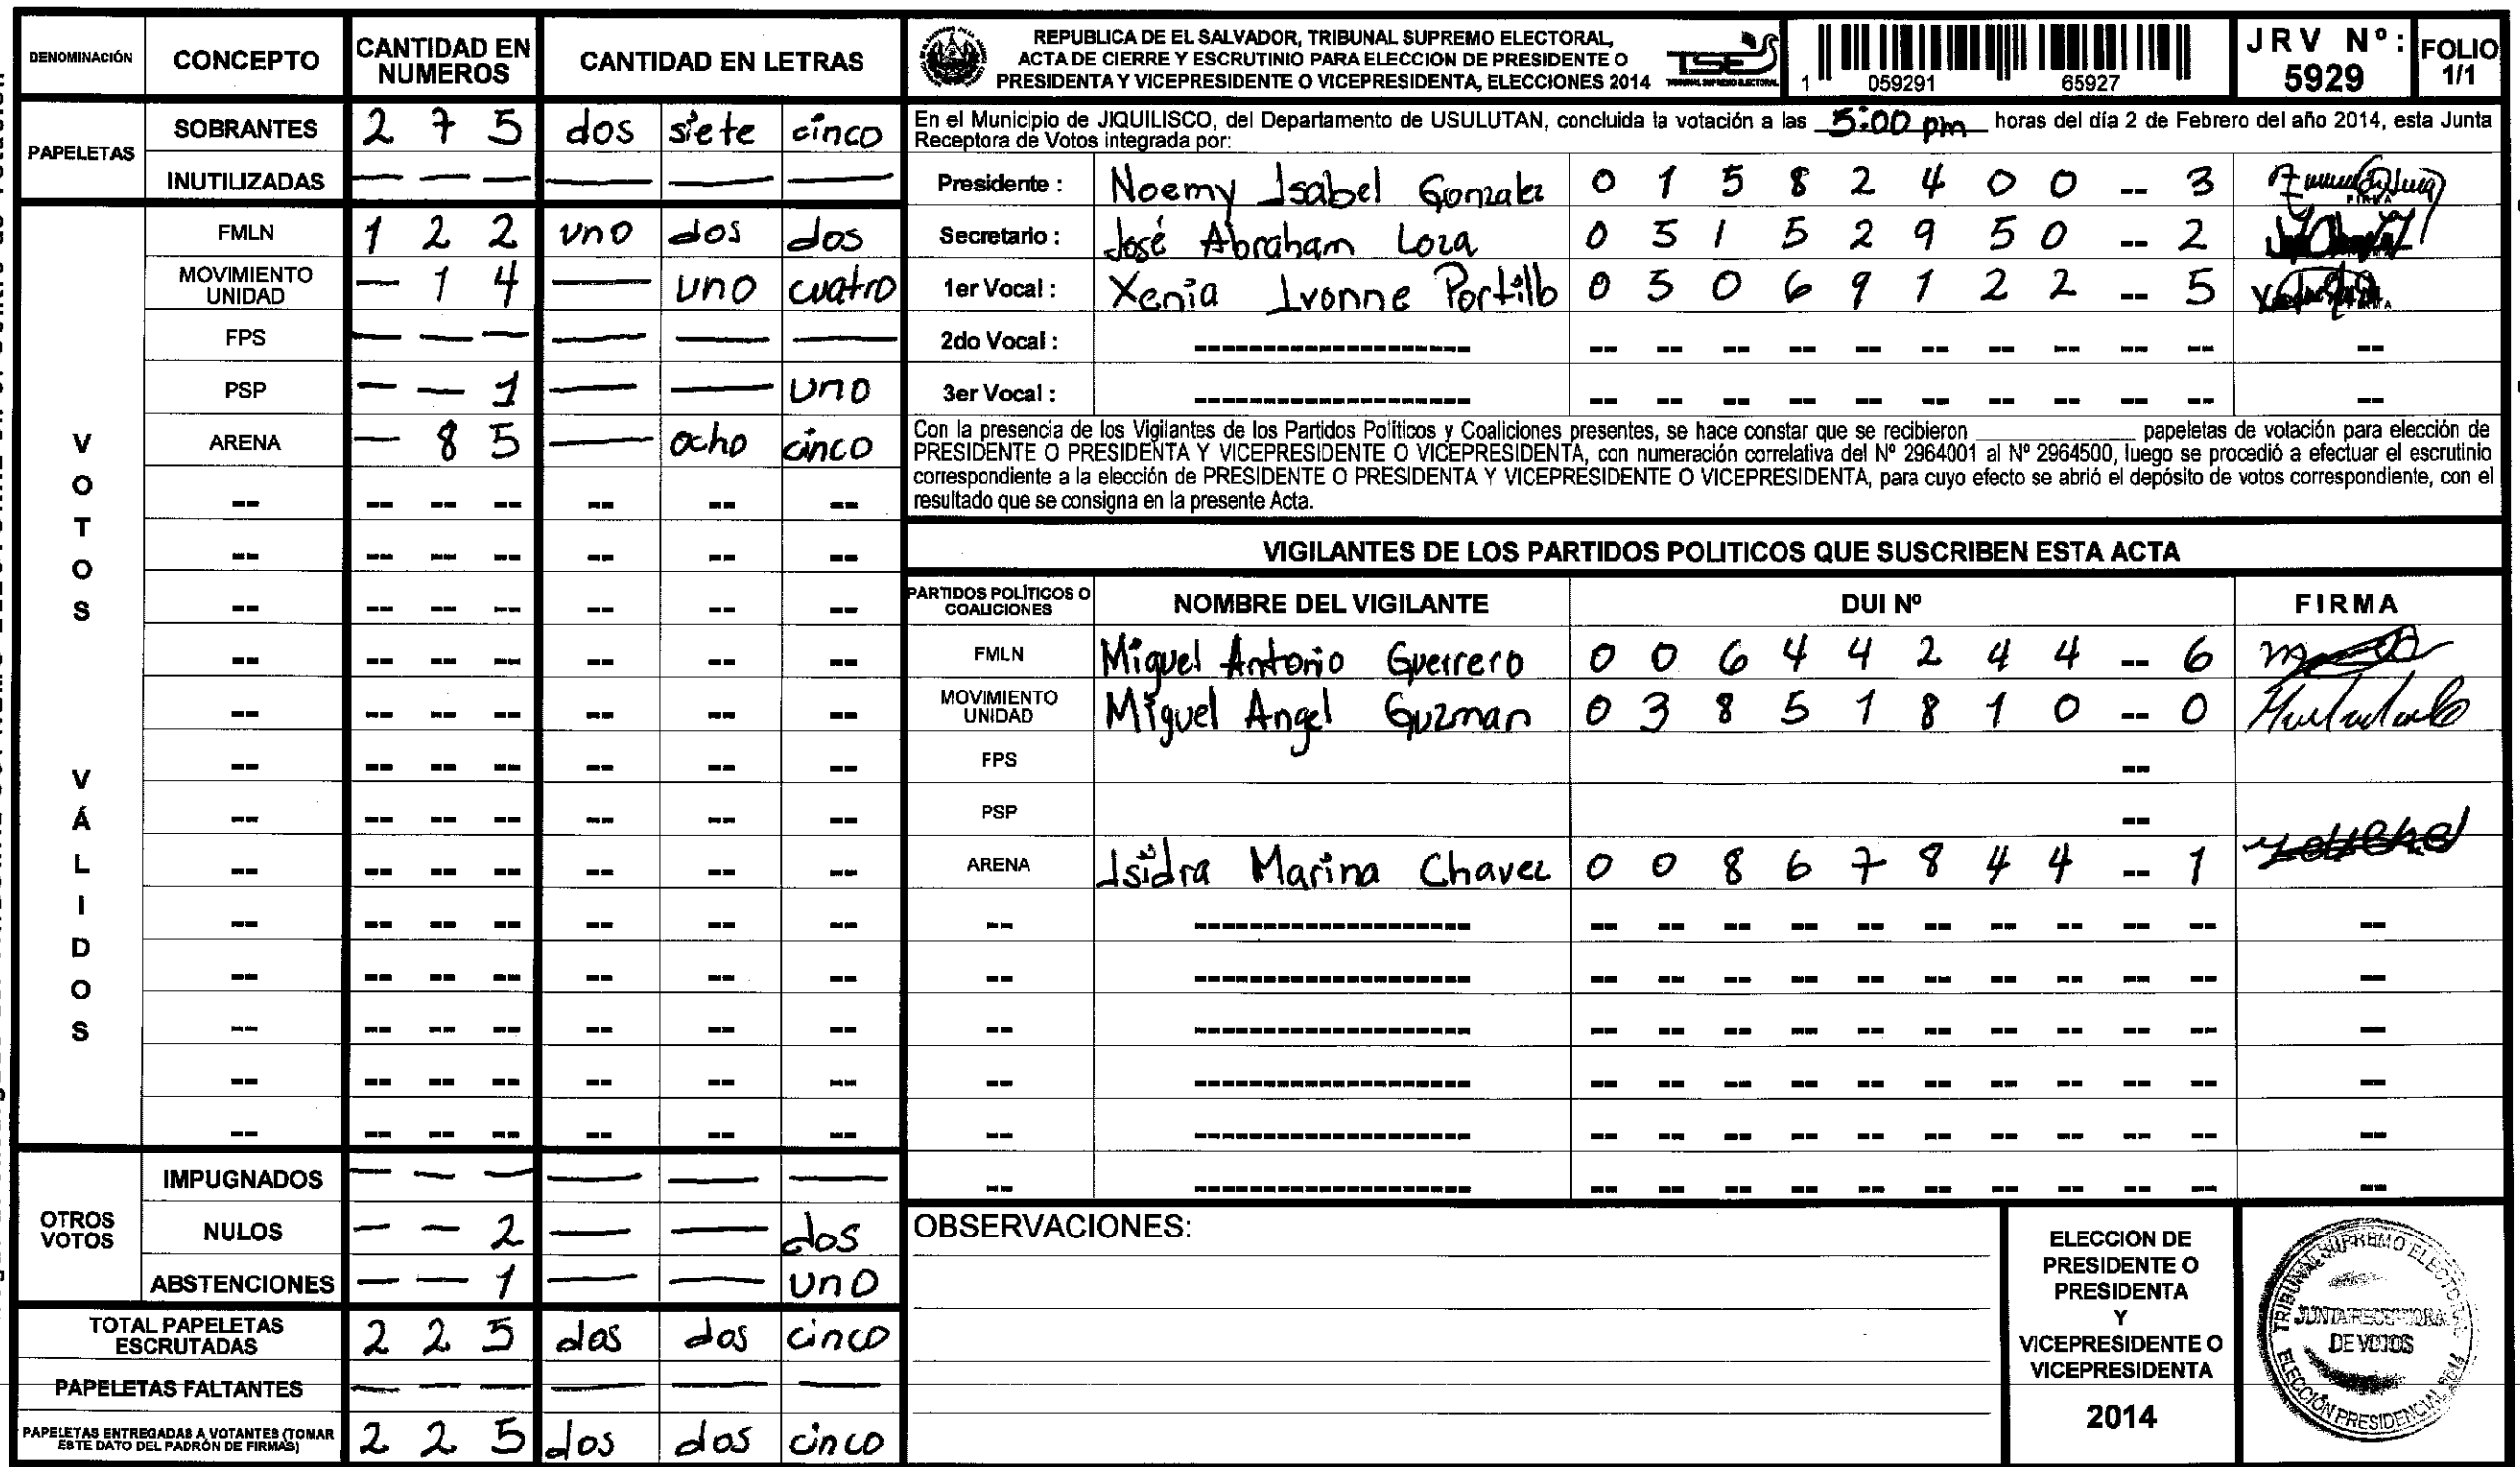 DENOMINACIÓN CONCEPTO CANTIDAD EN NUMEROS CANTIDAD EN LETRAS
PAPELETAS
SOBRANTES 2 7 5 dos siete cinco
INUTILIZADAS — — — — — —
VOTOS VÁLIDOS
FMLN 1 2 2 uno dos dos
MOVIMIENTO UNIDAD — 1 4 — uno cuatro
FPS — — — — — —
PSP — — 1 — — uno
ARENA — 8 5 — ocho cinco
-- -- -- -- -- -- --
-- -- -- -- -- -- --
-- -- -- -- -- -- --
-- -- -- -- -- -- --
-- -- -- -- -- -- --
-- -- -- -- -- -- --
-- -- -- -- -- -- --
-- -- -- -- -- -- --
-- -- -- -- -- -- --
-- -- -- -- -- -- --
-- -- -- -- -- -- --
-- -- -- -- -- -- --
-- -- -- -- -- -- --
OTROS VOTOS
IMPUGNADOS — — — — — —
NULOS — — 2 — — dos
ABSTENCIONES — — 1 — — uno
TOTAL PAPELETAS ESCRUTADAS 2 2 5 dos dos cinco
PAPELETAS FALTANTES — — — — — —
PAPELETAS ENTREGADAS A VOTANTES (TOMAR ESTE DATO DEL PADRÓN DE FIRMAS) 2 2 5 dos dos cinco
REPUBLICA DE EL SALVADOR, TRIBUNAL SUPREMO ELECTORAL,
ACTA DE CIERRE Y ESCRUTINIO PARA ELECCION DE PRESIDENTE O
PRESIDENTA Y VICEPRESIDENTE O VICEPRESIDENTA, ELECCIONES 2014
TSE
TRIBUNAL SUPREMO ELECTORAL
1 059291 65927
JRV Nº: 5929
FOLIO 1/1
En el Municipio de JIQUILISCO, del Departamento de USULUTAN, concluida la votación a las 5:00 pm horas del día 2 de Febrero del año 2014, esta Junta
Receptora de Votos integrada por:
Presidente : Noemy Isabel Gonzalez 0 1 5 8 2 4 0 0 -- 3
Secretario : José Abraham Loza 0 3 1 5 2 9 5 0 -- 2
1er Vocal : Xenia Ivonne Portillo 0 3 0 6 9 1 2 2 -- 5
2do Vocal : ------------------ -- -- -- -- -- -- -- -- -- -- --
3er Vocal : ------------------ -- -- -- -- -- -- -- -- -- -- --
Con la presencia de los Vigilantes de los Partidos Políticos y Coaliciones presentes, se hace constar que se recibieron ________ papeletas de votación para elección de
PRESIDENTE O PRESIDENTA Y VICEPRESIDENTE O VICEPRESIDENTA, con numeración correlativa del Nº 2964001 al Nº 2964500, luego se procedió a efectuar el escrutinio
correspondiente a la elección de PRESIDENTE O PRESIDENTA Y VICEPRESIDENTE O VICEPRESIDENTA, para cuyo efecto se abrió el depósito de votos correspondiente, con el
resultado que se consigna en la presente Acta.
VIGILANTES DE LOS PARTIDOS POLITICOS QUE SUSCRIBEN ESTA ACTA
PARTIDOS POLÍTICOS O COALICIONES NOMBRE DEL VIGILANTE DUI Nº FIRMA
FMLN Miguel Antonio Guerrero 0 0 6 4 4 2 4 4 -- 6
MOVIMIENTO UNIDAD Miguel Angel Guzman 0 3 8 5 1 8 1 0 -- 0
FPS --
PSP --
ARENA Isidra Marina Chavez 0 0 8 6 7 8 4 4 -- 1
-- ------------------ -- -- -- -- -- -- -- -- -- -- --
-- ------------------ -- -- -- -- -- -- -- -- -- -- --
-- ------------------ -- -- -- -- -- -- -- -- -- -- --
-- ------------------ -- -- -- -- -- -- -- -- -- -- --
-- ------------------ -- -- -- -- -- -- -- -- -- -- --
-- ------------------ -- -- -- -- -- -- -- -- -- -- --
OBSERVACIONES:
ELECCION DE
PRESIDENTE O
PRESIDENTA
Y
VICEPRESIDENTE O
VICEPRESIDENTA
2014
TRIBUNAL SUPREMO ELECTORAL
JUNTA RECEPTORA
DE VOTOS
ELECCIÓN PRESIDENCIAL 2014